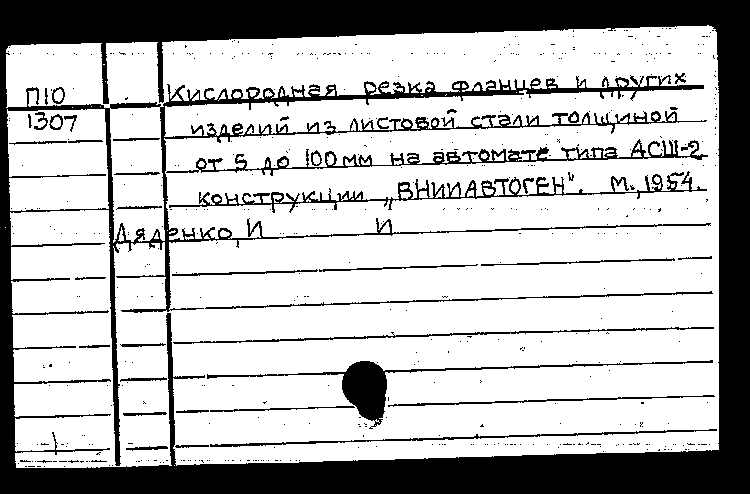 П10 Кислородная резка фланцев и других
1307 изделий из листовой стали толщиной
от 5 до 100мм на автомате типа АСШ-2
конструкции „ВНИИАВТОГЕН". М., 1954.
Дяденко, И И